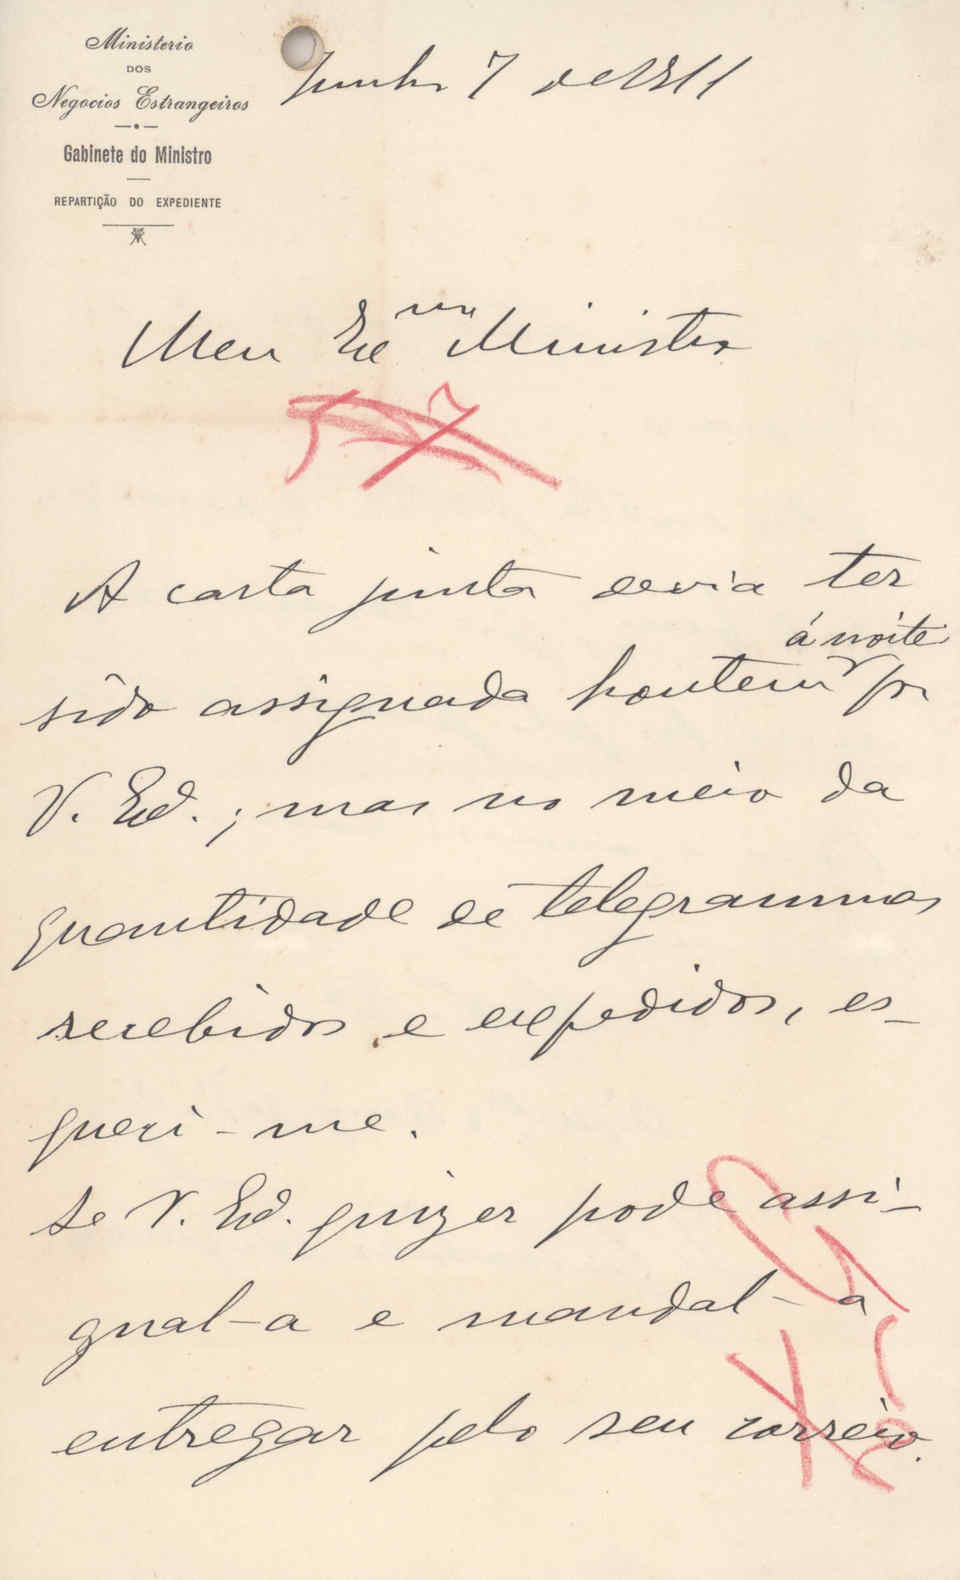 Ministerio
DOS
Negocios Estrangeiros
Gabinete do Ministro
REPARTIÇÃO DO EXPEDIENTE
Junho 7 de 1911
Meu Exᵐᵒ Ministro
A carta junta devia ter
á noite
sido assignada hontem por
V. Exª. ; mas no meio da
quantidade de telegrammas
recebidos e expedidos, es-
queci-me.
Se V. Exª. quizer pode assi-
gnal-a e mandal-a
entregar pelo seu correio.